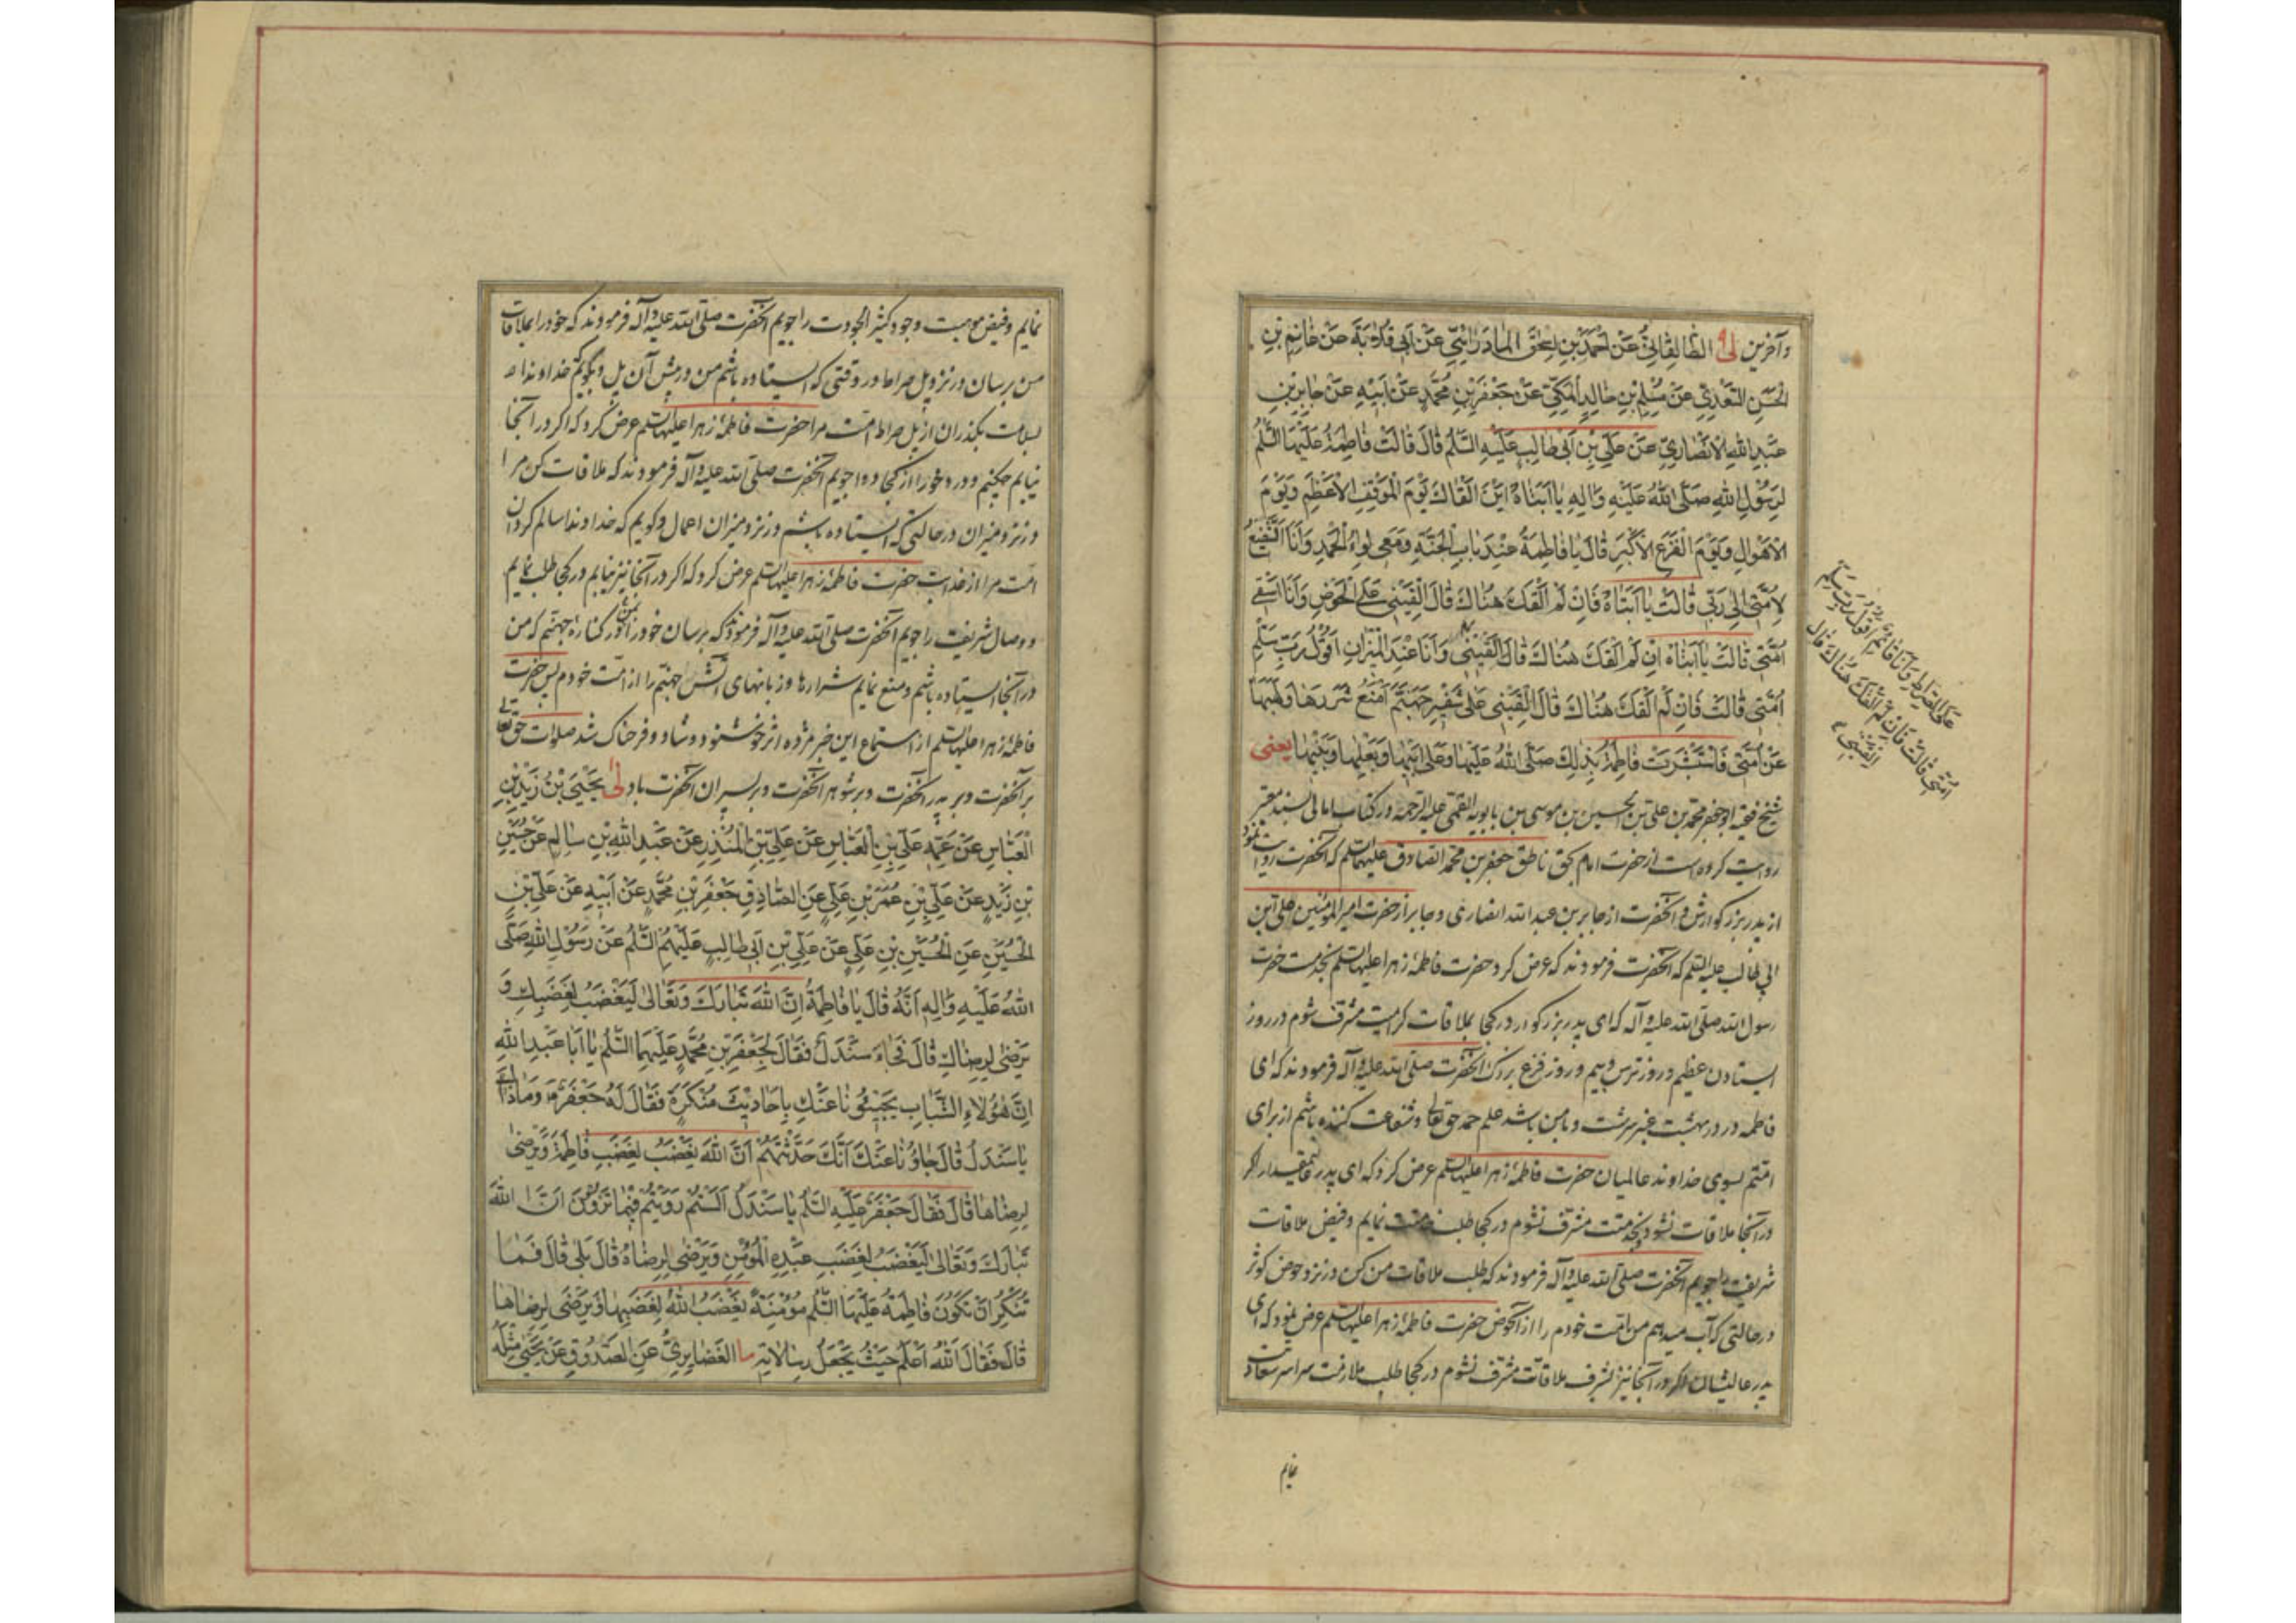 وآخرين لى الطَّالِقَانِيُّ عَنْ أَحْمَدَ بْنِ إِسْحَقَ المَادَرَائِيِّ عَنْ أَبِي قِلَابَةَ عَنْ غَانِمِ بْنِ
الْحَسَنِ السَّعْدِيِّ عَنْ مُسْلِمِ بْنِ خَالِدٍ الْمَكِّيِّ عَنْ جَعْفَرِ بْنِ مُحَمَّدٍ عَنْ أَبِيهِ عَنْ جَابِرِ بْنِ
عَبْدِ اللهِ الْأَنْصَارِيِّ عَنْ عَلِيِّ بْنِ أَبِي طَالِبٍ عَلَيْهِ السَّلَمُ قَالَ قَالَتْ فَاطِمَةُ عَلَيْهَا السَّلَمُ
لِرَسُولِ اللهِ صَلَّى اللهُ عَلَيْهِ وَآلِهِ يَا أَبَتَاهْ أَيْنَ أَلْقَاكَ يَوْمَ الْمَوْقِفِ الْأَعْظَمِ وَيَوْمَ
الْأَهْوَالِ وَيَوْمَ الْفَزَعِ الْأَكْبَرِ قَالَ يَا فَاطِمَةُ عِنْدَ بَابِ الْجَنَّةِ وَمَعِي لِوَاءُ الْحَمْدِ وَأَنَا الشَّفِيعُ
لِأُمَّتِي إِلَى رَبِّي قَالَتْ يَا أَبَتَاهْ فَإِنْ لَمْ أَلْقَكَ هُنَاكَ قَالَ الْقَيْنِي عَلَى الْحَوْضِ وَأَنَا أَسْقِي
أُمَّتِي قَالَتْ يَا أَبَتَاهْ إِنْ لَمْ أَلْقَكَ هُنَاكَ قَالَ الْقَيْنِي وَأَنَا عِنْدَ الْمِيزَانِ أَقُولُ رَبِّ سَلِّمْ
أُمَّتِي قَالَتْ فَإِنْ لَمْ أَلْقَكَ هُنَاكَ قَالَ الْقَيْنِي عَلَى شَفِيرِ جَهَنَّمَ أَمْنَعُ شَرَرَهَا وَلَهَبَهَا
عَنْ أُمَّتِي فَاسْتَبْشَرَتْ فَاطِمَةُ بِذَلِكَ صَلَّى اللهُ عَلَيْهَا وَعَلَى أَبِيهَا وَبَعْلِهَا وَبَنِيهَا يعنى
شيخ فقيه ابو جعفر محمد بن على بن الحسين بن موسى بن بابويه القمى عليه الرحمة در كتاب امالى بسند معتبر
روايت كرده است از حضرت امام بحق ناطق جعفر بن محمد الصادق عليهما السلم كه آنحضرت روايت نمود
از پدر بزركوارش و آنحضرت از جابر بن عبد الله انصارى و جابر از حضرت امير المؤمنين على بن
ابى طالب عليه السلم كه آنحضرت فرمودند كه عرض كرد حضرت فاطمهٔ زهرا عليها السلم بخدمت حضرت
رسول الله صلى الله عليه و آله كه اى پدر بزركوار در كجا بملاقات كرامت مشرف شوم در روز
ايستادن عظيم و روز ترس و بيم و روز فزع بزرك آنحضرت صلى الله عليه و آله فرمودند كه اى
فاطمه در در بهشت عنبر سرشت و با من باشد علم حمد حق تعالى و شفاعت كننده باشم از براى
امتم بسوى خداوند عالميان حضرت فاطمهٔ زهرا عليها السلم عرض كرد كه اى پدر عاليمقدار اكر
در آنجا ملاقات نشود و بخدمتت مشرف نشوم در كجا طلب خدمتت نمايم و فيض ملاقات
شريفت را جويم آنحضرت صلى الله عليه و آله فرمودند كه طلب ملاقات من كن در نزد حوض كوثر
در حالتى كه آب ميدهم من امت خودم را از آنحوض حضرت فاطمهٔ زهرا عليها السلم عرض نمود كه اى
پدر عاليشان اكر در آنجا نيز بشرف ملاقات مشرف نشوم در كجا طلب ملازمت سراسر سعادت
نمايم
عَلَى الصِّرَاطِ وَأَنَا قَائِمٌ أَقُولُ رَبِّ سَلِّمْ
أُمَّتِي قَالَتْ فَإِنْ لَمْ أَلْقَكَ هُنَاكَ قَالَ
الْقَيْنِي
نمايم و فيض موهبت وجود كثير الجودت را جويم آنحضرت صلى الله عليه و آله فرمودند كه خود را بملاقات
من برسان در نزد پل صراط در وقتى كه ايستاده باشم من در پيش آن پل و بكويم خداوندا
بسلامت بكذران از پل صراط امت مرا حضرت فاطمهٔ زهرا عليها السلم عرض كرد كه اكر در آنجا
نيابم چكنم و در خود را از كجا دوا جويم آنحضرت صلى الله عليه و آله فرمودند كه ملاقات كن مرا
در نزد ميزان در حالتى كه ايستاده باشم در نزد ميزان اعمال و كويم كه خداوندا سالم كردان
امت مرا از عذابت حضرت فاطمهٔ زهرا عليها السلم عرض كرد كه اكر در آنجا نيز نيابم در كجا طلب نمايم
و وصال شريفت را جويم آنحضرت صلى الله عليه و آله فرمودند كه برسان خود را بمن در كنارهٔ جهنم كه من
در آنجا ايستاده باشم و منع نمايم شرارها و زبانهاى آتش جهنم را از امت خودم پس حضرت
فاطمهٔ زهرا عليها السلم از استماع اين خبر مژده اثر خوشنود و شاد و فرحناك شد صلوات حق تعالى
بر آنحضرت و بر پدر آنحضرت و بر شوهر آنحضرت و بر پسران آنحضرت باد لى يَحْيَى بْنُ زَيْدِ بْنِ
الْعَبَّاسِ عَنْ عَمِّهِ عَلِيِّ بْنِ الْعَبَّاسِ عَنْ عَلِيِّ بْنِ الْمُنْذِرِ عَنْ عَبْدِ اللهِ بْنِ سَالِمٍ عَنْ حُسَيْنِ
بْنِ زَيْدٍ عَنْ عَلِيِّ بْنِ عُمَرَ بْنِ عَلِيٍّ عَنِ الصَّادِقِ جَعْفَرِ بْنِ مُحَمَّدٍ عَنْ أَبِيهِ عَنْ عَلِيِّ بْنِ
الْحُسَيْنِ عَنِ الْحُسَيْنِ بْنِ عَلِيٍّ عَنْ عَلِيِّ بْنِ أَبِي طَالِبٍ عَلَيْهِمُ السَّلَمُ عَنْ رَسُولِ اللهِ صَلَّى
اللهُ عَلَيْهِ وَآلِهِ أَنَّهُ قَالَ يَا فَاطِمَةُ إِنَّ اللهَ تَبَارَكَ وَتَعَالَى لَيَغْضَبُ لِغَضَبِكِ وَ
يَرْضَى لِرِضَاكِ قَالَ فَجَاءَ سَنْدَلٌ فَقَالَ لِجَعْفَرِ بْنِ مُحَمَّدٍ عَلَيْهِمَا السَّلَمُ يَا أَبَا عَبْدِ اللهِ
إِنَّ هَؤُلَاءِ الشَّبَابِ يَجِيئُونَا عَنْكَ بِأَحَادِيثَ مُنْكَرَةٍ فَقَالَ لَهُ جَعْفَرٌ وَمَا ذَاكَ
يَا سَنْدَلُ قَالَ جَاؤُنَا عَنْكَ أَنَّكَ حَدَّثْتَهُمْ أَنَّ اللهَ يَغْضَبُ لِغَضَبِ فَاطِمَةَ وَيَرْضَى
لِرِضَاهَا قَالَ فَقَالَ جَعْفَرٌ عَلَيْهِ السَّلَمُ يَا سَنْدَلُ أَلَسْتُمْ رَوَيْتُمْ فِيمَا تَرْوُونَ أَنَّ اللهَ
تَبَارَكَ وَتَعَالَى لَيَغْضَبُ لِغَضَبِ عَبْدِهِ الْمُؤْمِنِ وَيَرْضَى لِرِضَاهُ قَالَ بَلَى قَالَ فَمَا
تُنْكِرُ أَنْ تَكُونَ فَاطِمَةُ عَلَيْهَا السَّلَمُ مُؤْمِنَةً يَغْضَبُ اللهُ لِغَضَبِهَا وَيَرْضَى لِرِضَاهَا
قَالَ فَقَالَ اللهُ أَعْلَمُ حَيْثُ يَجْعَلُ رِسَالَاتِهِ ما الْغَضَايِرِيُّ عَنِ الصَّدُوقِ عَنْ يَحْيَى مِثْلَهُ